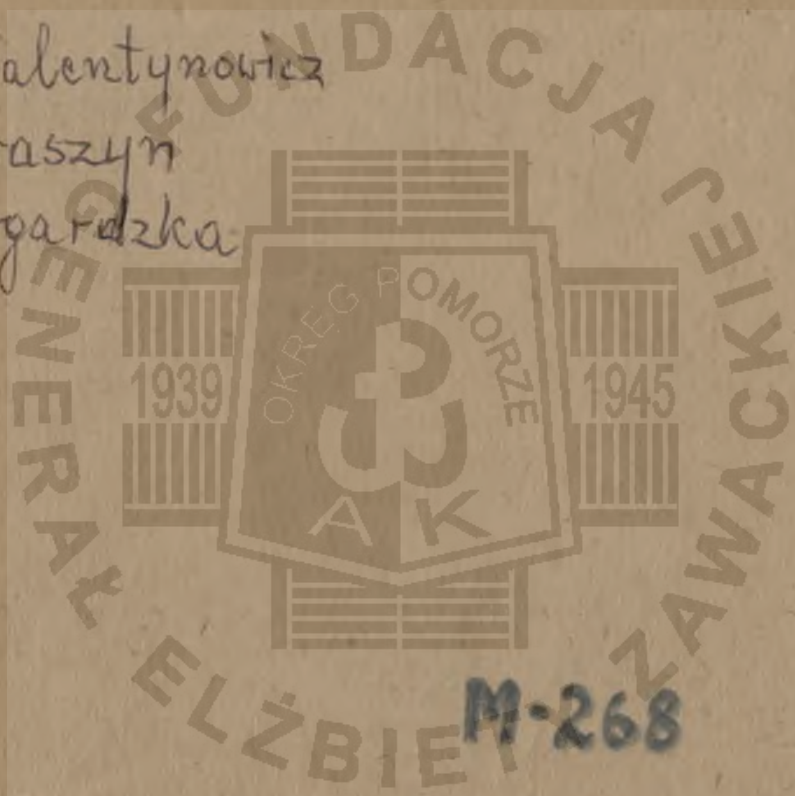 alentynowicz
aszyn
gardzka
FUNDACJA GENERAŁ ELŻBIETY ZAWACKIEJ
OKRĘG POMORZE
1939
1945
AK
M-268